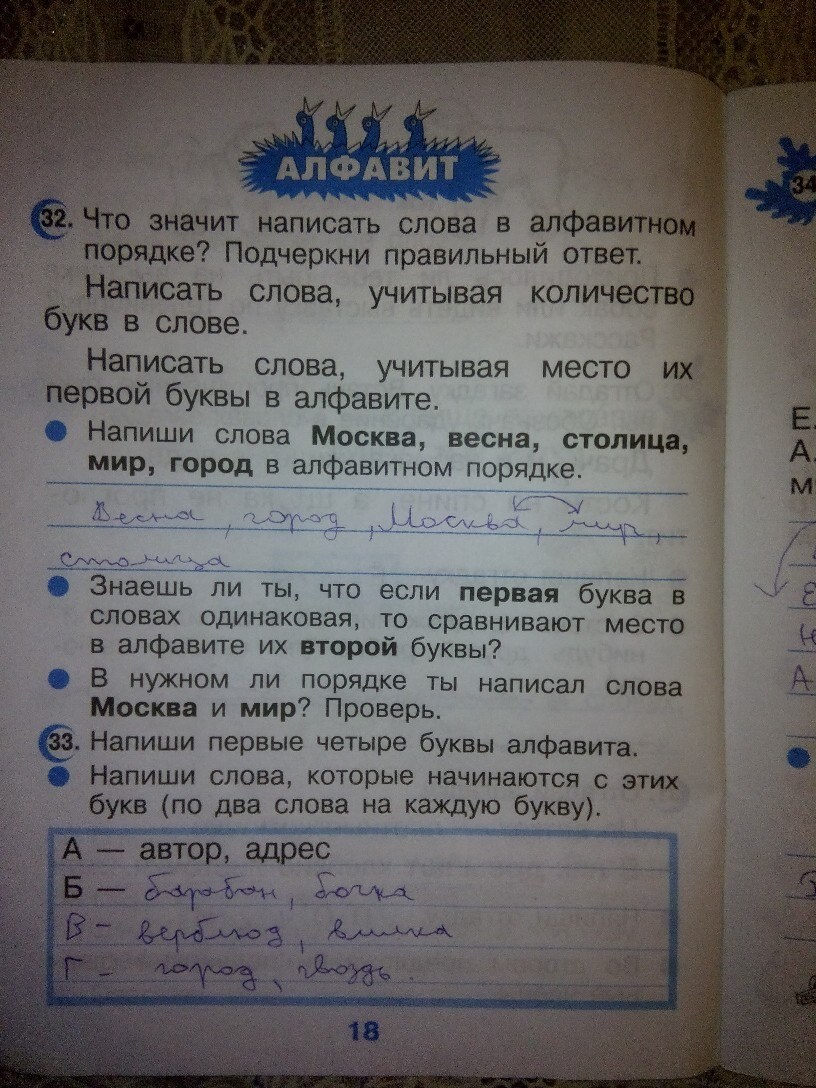 АЛФАВИТ
32. Что значит написать слова в алфавитном
порядке? Подчеркни правильный ответ.
Написать слова, учитывая количество
букв в слове.
Написать слова, учитывая место их
первой буквы в алфавите.
Напиши слова Москва, весна, столица,
мир, город в алфавитном порядке.
Весна, город, Москва, мир,
столица
Знаешь ли ты, что если первая буква в
словах одинаковая, то сравнивают место
в алфавите их второй буквы?
В нужном ли порядке ты написал слова
Москва и мир? Проверь.
33. Напиши первые четыре буквы алфавита.
Напиши слова, которые начинаются с этих
букв (по два слова на каждую букву).
А — автор, адрес
Б — барабан, бочка
В - верблюд, вилка
Г - город, гвоздь.
18
34
Е.
А.
м
Е
Н
А